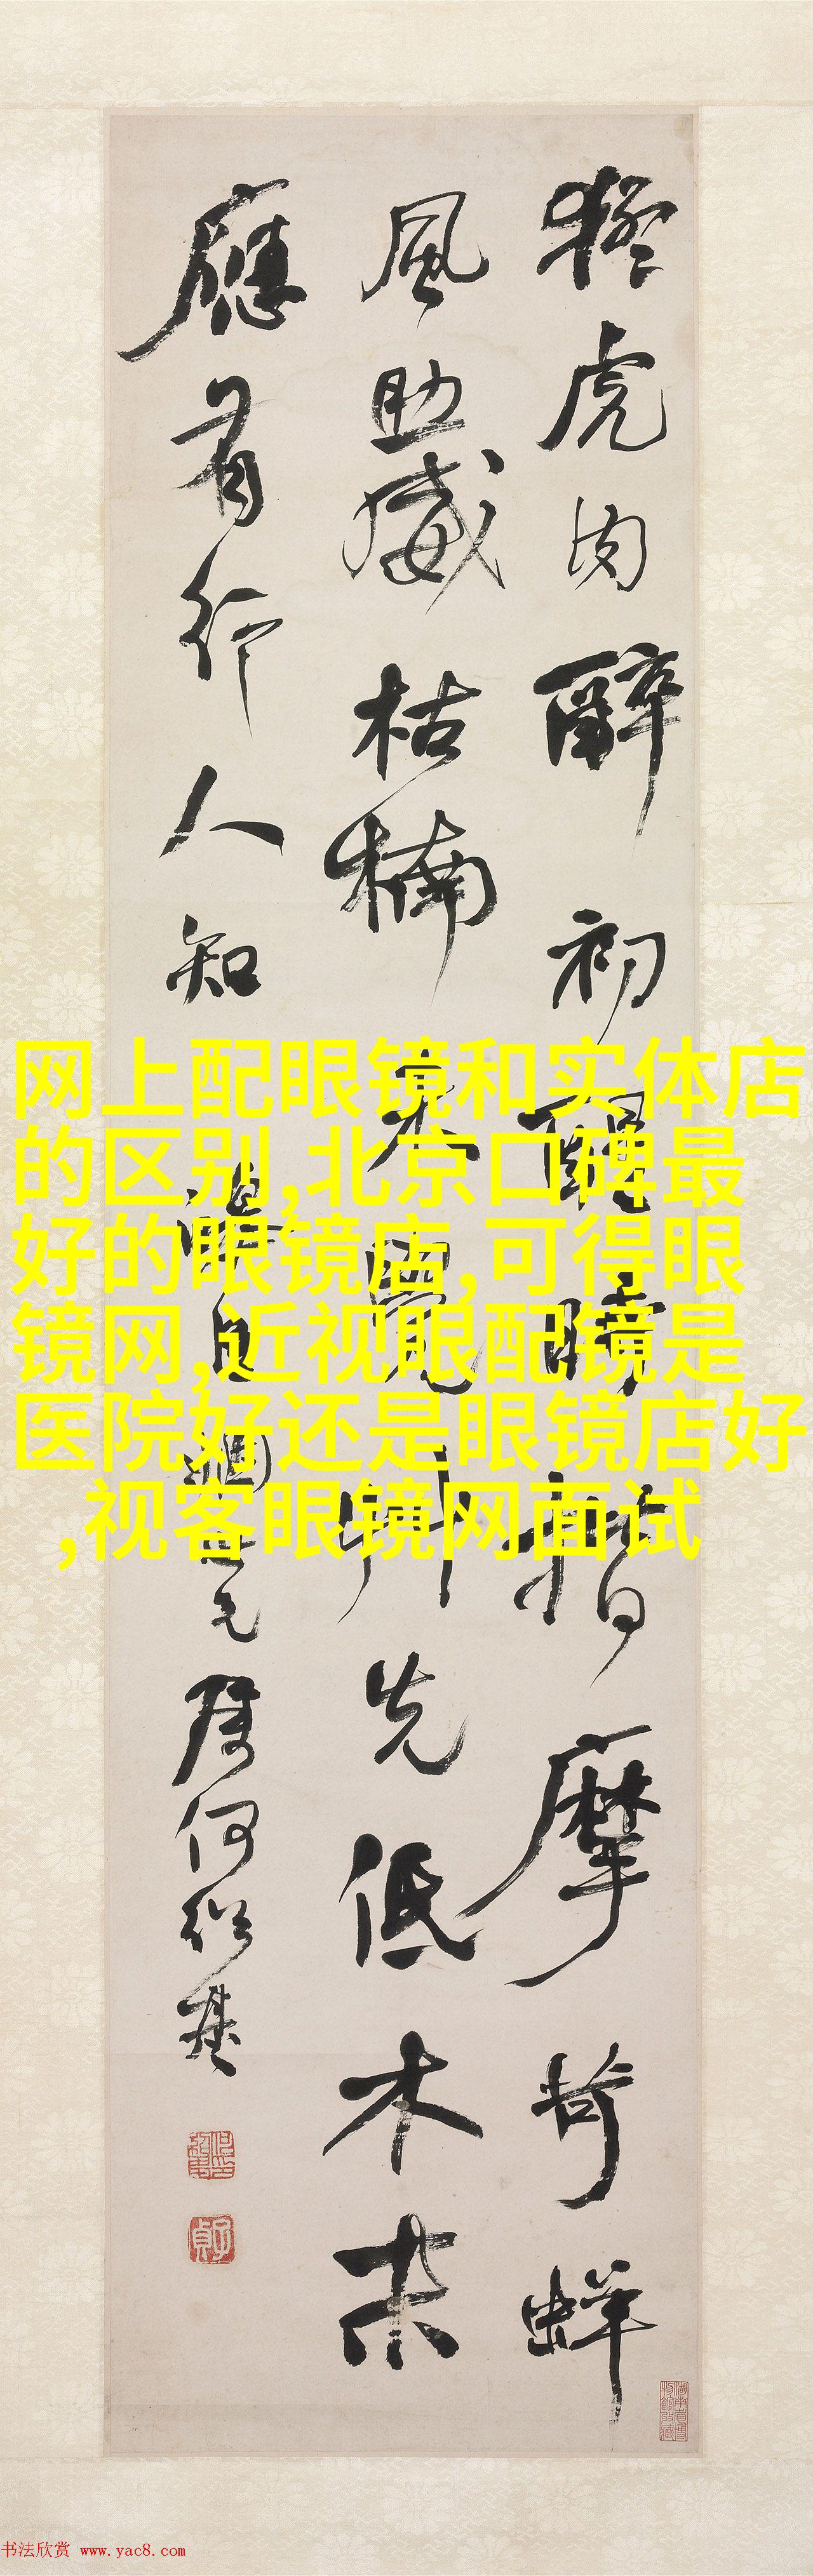 猛虎肉醉初醒時揩摩苛蛘
風助威枯楠未覺草先低木末
應有行人知
陽月烟
何紹基
网上配眼镜和实体店
的区别,北京口碑最
好的眼镜店,可得眼
镜网,近视眼配镜是
医院好还是眼镜店好
,视客眼镜网面试
书法欣赏 www.yac8.com